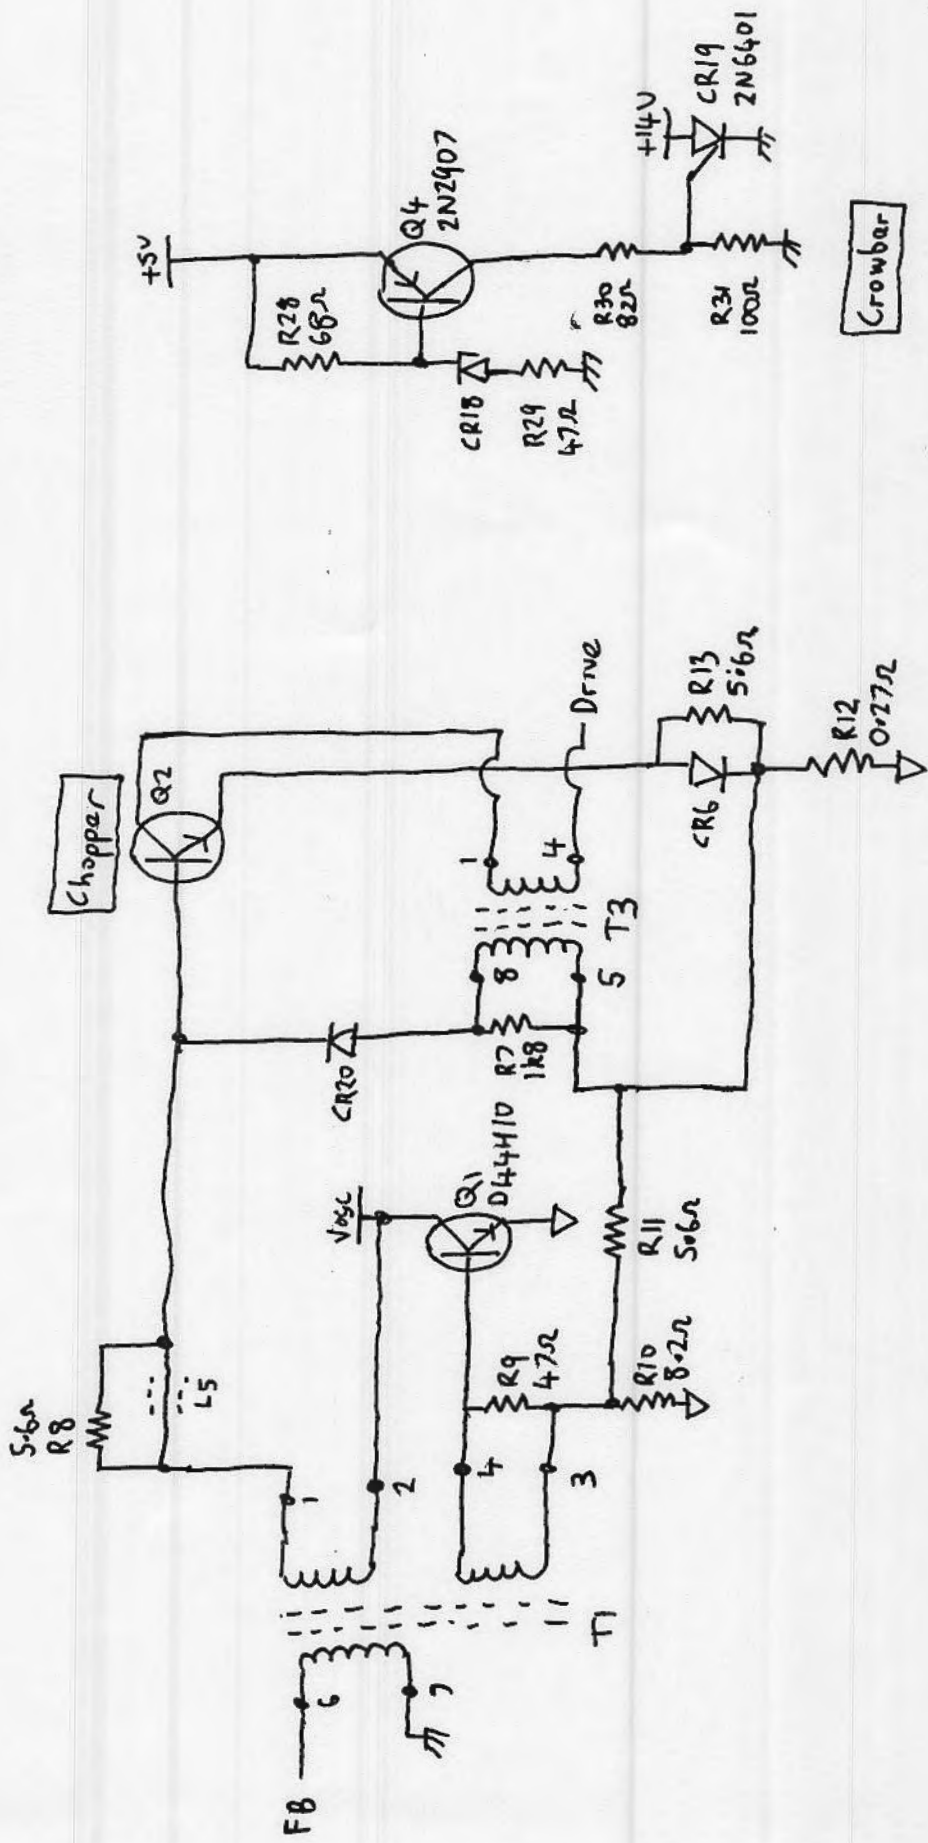 Chopper
5.6Ω
R8
L5
Q2
Vosc
CR20
1
2
FB
6
7
T1
4
3
Q1
D44H10
R9
47Ω
R10
8.2Ω
R11
5.6Ω
R7
1k8
8
5
T3
1
4
Drive
CR6
R13
5.6Ω
R12
0.27Ω
+5V
R28
68Ω
Q4
2N2907
CR18
R29
47Ω
R30
82Ω
R31
100Ω
+14V
CR19
2N6401
Crowbar